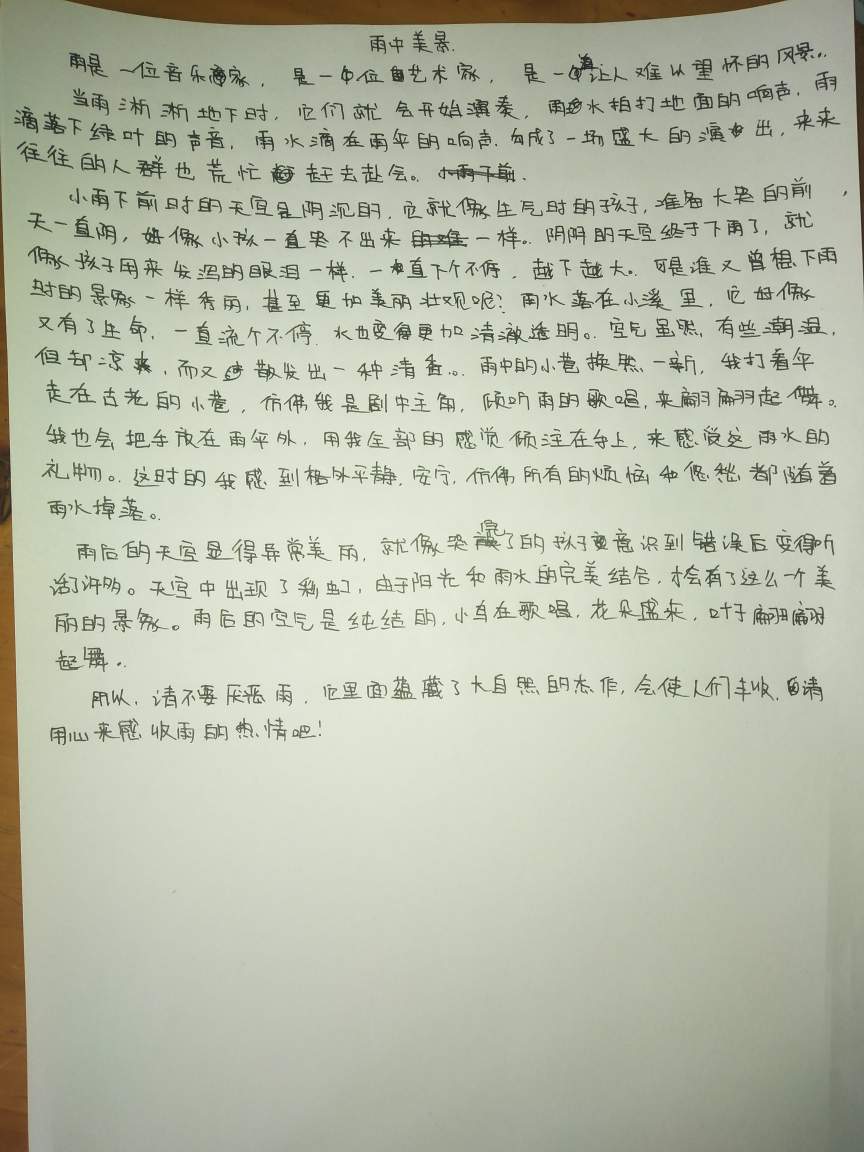 雨中美景.
雨是一位音乐家，是一位艺术家，是一道让人难以望怀的风景..
当雨淅淅地下时，它们就会开始演奏，雨水拍打地面的响声，雨
滴落下绿叶的声音，雨水滴在雨伞的响声.勾成了一场盛大的演出，来来
往往的人群也荒忙赶去赴会。.
小雨下前时的天空是阴沉的，它就像生气时的孩子，准备大哭的前，
天一直阴，好像小孩一直哭不出来一样。阴阴的天空终于下雨了，就
像孩子用来发泻的眼泪一样.一直下个不停，越下越大。可是谁又曾想，下雨
时的景象一样秀丽，甚至更加美丽壮观呢？雨水落在小溪里，它好像
又有了生命，一直流个不停.水也变得更加清澈透明。.空气虽然，有些潮湿，
但却凉爽，而又散发出一种清香.。雨中的小巷换然一新，我打着伞
走在古老的小巷，仿佛我是剧中主角，倾听雨的歌唱，来翩翩起舞。
我也会把手放在雨伞外，用我全部的感觉倾注在手上，来感觉这雨水的
礼物。.这时的我感到格外平静，安宁，仿佛所有的烦恼和忧愁都随着
雨水掉落。.
雨后的天空显得异常美丽，就像哭完了的孩子意识到错误后变得听
话了许多。天空中出现了彩虹，由于阳光和雨水的完美结合，才会有了这么一个美
丽的景象。雨后的空气是纯结的，小鸟在歌唱，花朵盛来，叶子翩翩
起舞。.
所以，请不要厌恶雨，它里面蕴藏了大自然的杰作，会使人们丰收，请
用心来感收雨的热情吧！